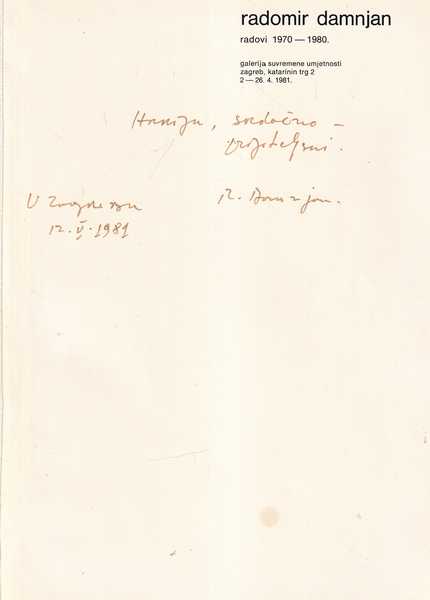 radomir damnjan
radovi 1970 — 1980.
galerija suvremene umjetnosti
zagreb, katarinin trg 2
2 — 26. 4. 1981.
srdačno –
prijateljski.
U Zagrebu
R. Damnjan.
12. V. 1981